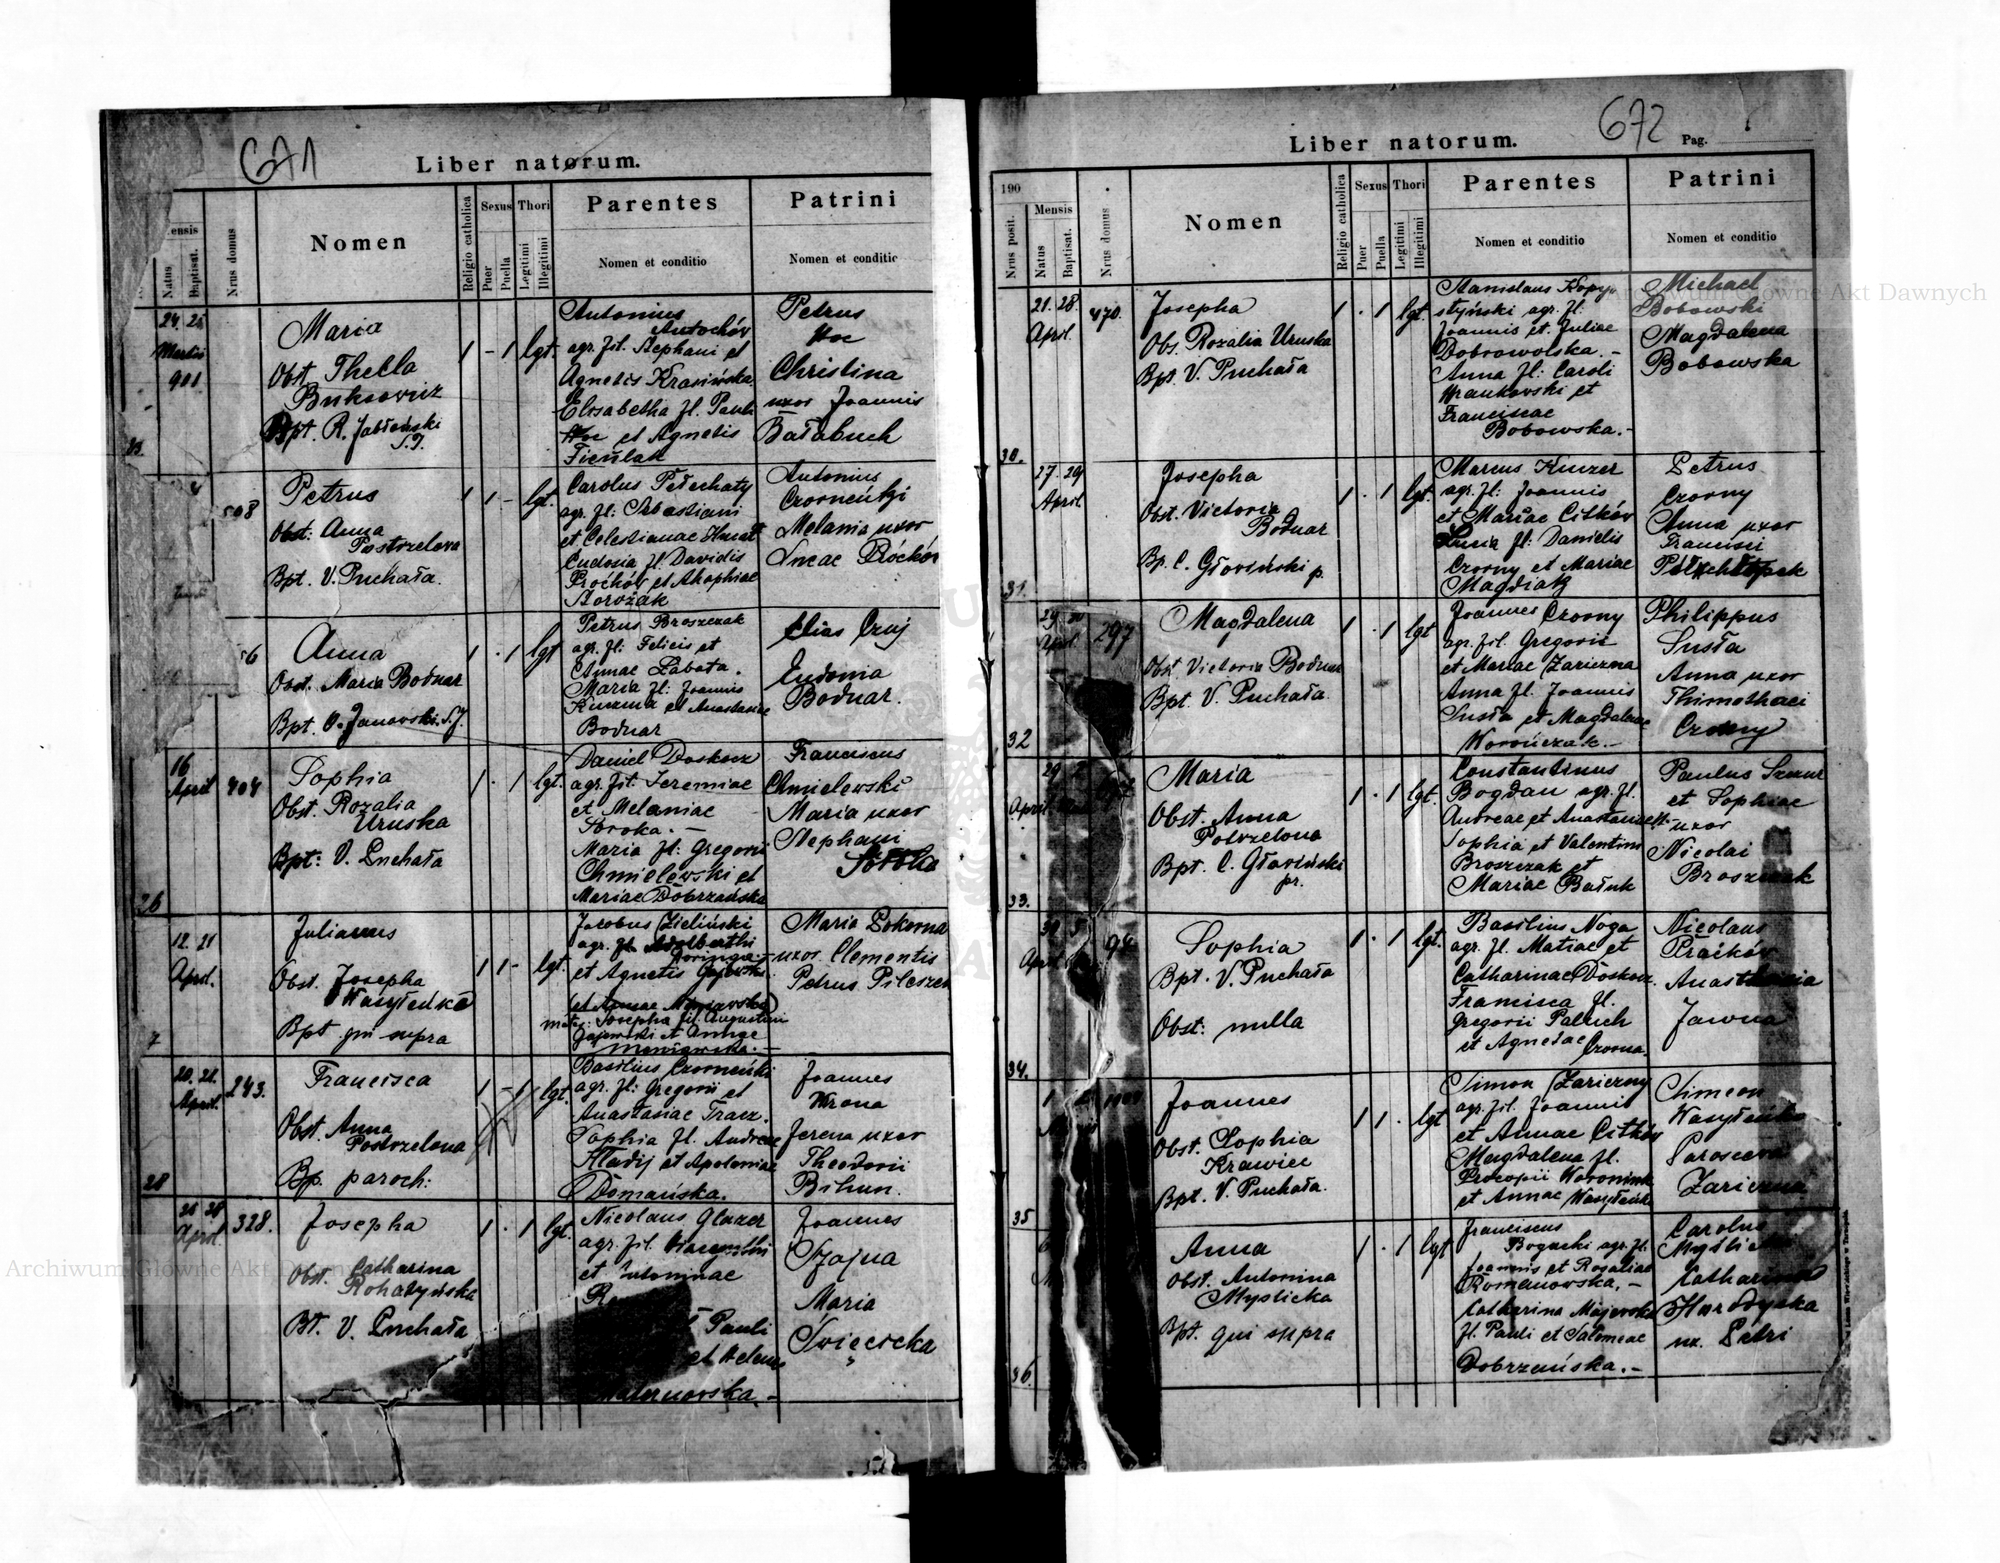 671
Liber natorum.
ensis
Natus
Baptisat.
Nrus domus
Nomen
Religio catholica
Sexus
Puer
Puella
Thori
Legitimi
Illegitimi
Parentes
Nomen et conditio
Patrini
Nomen et conditio
24. 25
Martii
901
Maria
Obst. Thecla
Bukowicz
Bpt. R. Jabłoński
S.J.
1 - 1 lgt.
Antonius
Antochów
agr. fil. Stephani et
Agnetis Krasińska
Elisabetha fl. Pauli
Hoc et Agnetis
Ficułak
Petrus
Hoc
Christina
uxor Joannis
Bałabuch
508
Petrus
Obst: Anna
Postrzelona
Bpt. V. Puchała.
1 1 - lgt.
Carolus Pełechaty
agr. fl: Sebastiani
et Celestianae
Eudosia fl. Davidis
Proćków et Ahaphiae
Storożak
Antonius
Czorneńkji
Melania uxor
Lucae Proćków
56
Anna
Obst. Maria Bodnar
Bpt. O. Janowski. S.J.
1 . 1 lgt
Petrus Broszczak
agr. fl: Felicis et
Annae Łabata.
Maria fl: Joannis
Kuzma et Anastasiae
Bodnar
Elias Czuj
Eudomia
Bodnar.
26
16
April
404
Sophia
Obst. Rozalia
Uruska
Bpt: V. Puchała
1 . 1 lgt.
Daniel Doskocz
agr. fil. Jeremiae
et Melaniae
Soroka. -
Maria fl: Gregorii
Chmielewski et
Mariae Dobrzańska
Franciscus
Chmielewski
Maria uxor
Stephani
Soroka
7
12. 21
April.
Julianus
Obst. Josepha
Wasyleńka
Bpt qui supra
1 1 - lgt.
Jacobus Zieliński
agr. fl. Adalberthi
et Agnetis
mater: Josepha fil. Augustini
Gajewski et Annae
Maria Pokorna
uxor Clementis
Petrus Pileszek
28
20. 21.
April.
243.
Francisca
Obst. Anna
Postrzelona
Bp. paroch:
1 - 1 lgt.
Basilius Czorneński
agr. fl: Gregorii et
Anastasiae Tracz.
Sophia fl. Andreae
Hładij et Apoloniae
Domańska.
Joannes
Wrona
Jerena uxor
Theodorii
Bihun.
April.
328.
Josepha
Obst. Catharina
Rohatyńska
Bt. V. Puchała
1 . 1 lgt.
Nicolaus Glazer
agr. fil. Hiacynthi
et Antoninae
Pauli
et Helenae
Joannes
Szajna
Maria
Święcicka
672
Liber natorum.
Pag.
190
Nrus posit.
Mensis
Natus
Baptisat.
Nrus domus
Nomen
Religio catholica
Sexus
Puer
Puella
Thori
Legitimi
Illegitimi
Parentes
Nomen et conditio
Patrini
Nomen et conditio
30.
21. 28.
April.
470.
Josepha
Obs. Rozalia Uruska
Bpt. V. Puchała
1 . 1 lgt.
Stanislaus Kopy-
styński agr. fl.
Joannis et Juliae
Dobrowolska. -
Anna fl: Caroli
Wrankowski et
Franciscae
Bobowska. -
Michael
Bobowski
Magdalena
Bobowska
31.
27. 29
April.
Josepha
Obst. Victoria
Bodnar
Bp. C. Głowiński p.
1 . 1 lgt.
Marcus Kinzer
agr. fl: Joannis
et Mariae Citków
Lucia fl: Danielis
Czorny et Mariae
Magdiak
Petrus
Czorny
Anna uxor
Francisci
32
April.
297
Magdalena
Obst Victoria Bodnar
Bpt V. Puchała.
1 . 1 lgt
Joannes Czorny
agr. fil. Gregorii
et Mariae Zariczna
Anna fl. Joannis
Susła et Magdalenae
Worończak. -
Philippus
Susła
Anna uxor
Thimothaei
Czorny
33.
29 2
April.
Maria
Obst. Anna
Postrzelona
Bpt. C. Głowiński
pr.
1 . 1 lgt.
Constantinus
Bogdan agr. fl.
Andreae et Anastasiae
Sophia et Valentini
Broszczak et
Mariae Bałuk
Paulus
et Sophiae
uxor
Nicolai
Broszczak
34.
30 5
April
94
Sophia
Bpt. V. Puchała
Obst: nulla
1 . 1 lgt.
Basilius Noga
agr. fl. Matiae et
Catharinae Doskocz.
Francisca fl.
Gregorii Paluch
et Agnetae Czorna.
Nicolaus
Proćków
Anastasia
Jawna
35
1
Joannes
Obst. Sophia
Krawiec
Bpt. V. Puchała.
1 1 . lgt
Simon Zariczny
agr. fil. Joannis
et Annae Citków
Magdalena fl.
Procopii Woroniuk
et Annae
Simeon
Parascewa
Zariczna
36.
Anna
Obst. Antonina
Myslicka
Bpt. qui supra
1 . 1 lgt
Franciscus
Bogucki agr. fl.
Joannis et Rosaliae
Romanowska. -
Catharina Majewska
fl. Pauli et Salomeae
Dobrzańska. -
Carolus
Catharina
Hordyska
ux. Petri
Archiwum Główne Akt Dawnych
Archiwum Główne Akt Dawnych